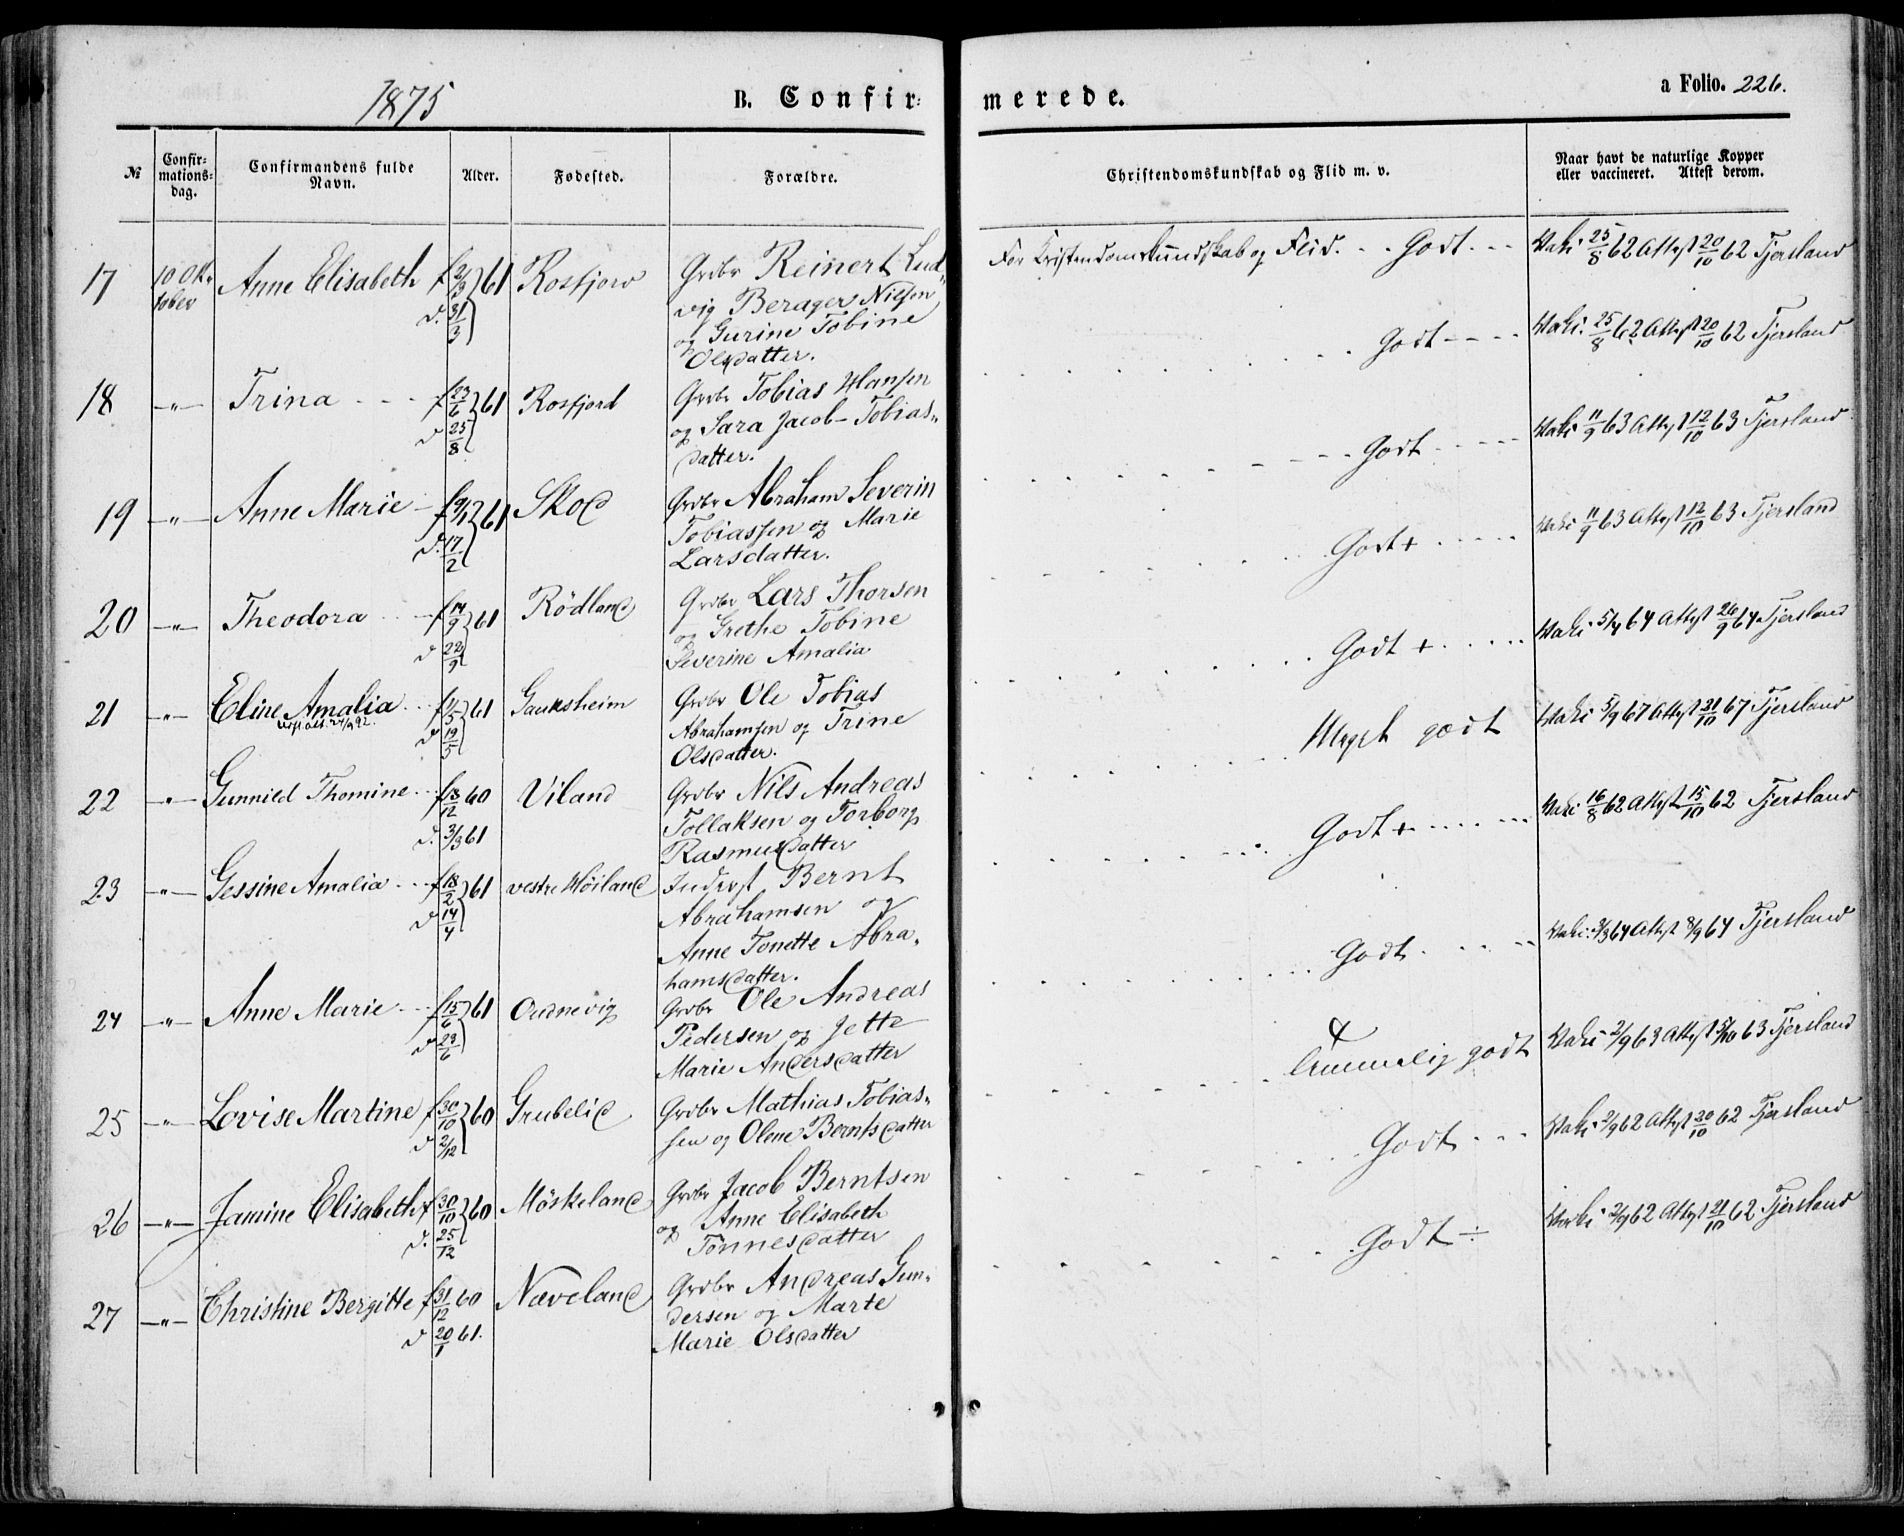 1875 B. Confir- merede. a Folio. 226.
№ Confir-mations-dag. Confirmandens fulde Navn. Alder. Fødested. Forældre. Christendomskundskab og Flid m. v. Naar havt de naturlige Kopper eller vaccineret. Attest derom.
17 10 Ok-tober Anne Elisabeth f 61 Rosfjord Grdbr Reinert Lud- For Kristendomskundskab og Flid. Godt Vaki 25/8 62 Attest 20/10 62 Tjersland
d. 31/3 vig Berager Nilsen
og Gurine Tobine
Olsdatter. Godt Vaki 25/8 62 Attest 20/10 62 Tjersland
18 -"- Trina f 23/6 61 Rosfjord Grdbr Tobias Hansen
d 25/8 og Sara Jacob- Tobias-
datter. Godt Vaki 11/9 63 Attest 12/10 63 Tjersland
19 -"- Anne Marie f 9/1 61 Skod Grdbr Abraham Severin
d. 17/2 Tobiassen og Marie
Larsdatter. Godt + Vaki 11/9 63 Attest 12/10 63 Tjersland
20 -"- Theodora f 14/9 61 Rödland Grdbr Lars Thorsen
d 22/9 og Grethe Tobine
Severine Amalia Godt + Vaki 64 Attest 26/9 64 Tjersland
21 -"- Eline Amalia f 61 Gauksheim Grdbr Ole Tobias
d 19/5 Abrahamsen og Trine
Olsdatter. Meget godt Vaki 5/9 67 Attest 21/10 67 Tjersland
22 -"- Gunnild Thomine f 18/12 60 Viland Grdbr Nils Andreas
d. 3/3 61 Tollaksen og Torborg
Rasmusdatter Godt + Vaki 16/8 62 Attest 15/10 62 Tjersland
23 -"- Gessine Amalia f 18/2 61 vestre Höiland Inderst Bernt
d 14/4 Abrahamsen og
Anne Tonette Abra-
hamsdatter. Godt Vaki 64 Attest 8/9 64 Tjersland
24 -"- Anne Marie f 15/6 61 Oudnevig Grdbr Ole Andreas
d 23/6 Pedersen og Jette
Marie Andersdatter temmelig godt Vaki 2/9 63 Attest 5/10 63 Tjersland
25 -"- Lovise Martine f 30/10 60 Grubelid Grdbr Mathias Tobias-
d 2/12 sen og Olene Berntsdatter Godt Vaki 2/9 62 Attest 20/10 62 Tjersland
26 -"- Jamine Elisabeth f 30/10 60 Möskeland Grdbr Jacob Berntsen
d. 25/12 og Anne Elisabeth
Tönnesdatter Godt ÷ Vaki 2/9 62 Attest 21/10 62 Tjersland
27 -"- Christine Bergitte f 31/12 60 Næveland Grdbr Andreas Gun-
d 20/1 61. dersen og Marte
Marie Olsdatter